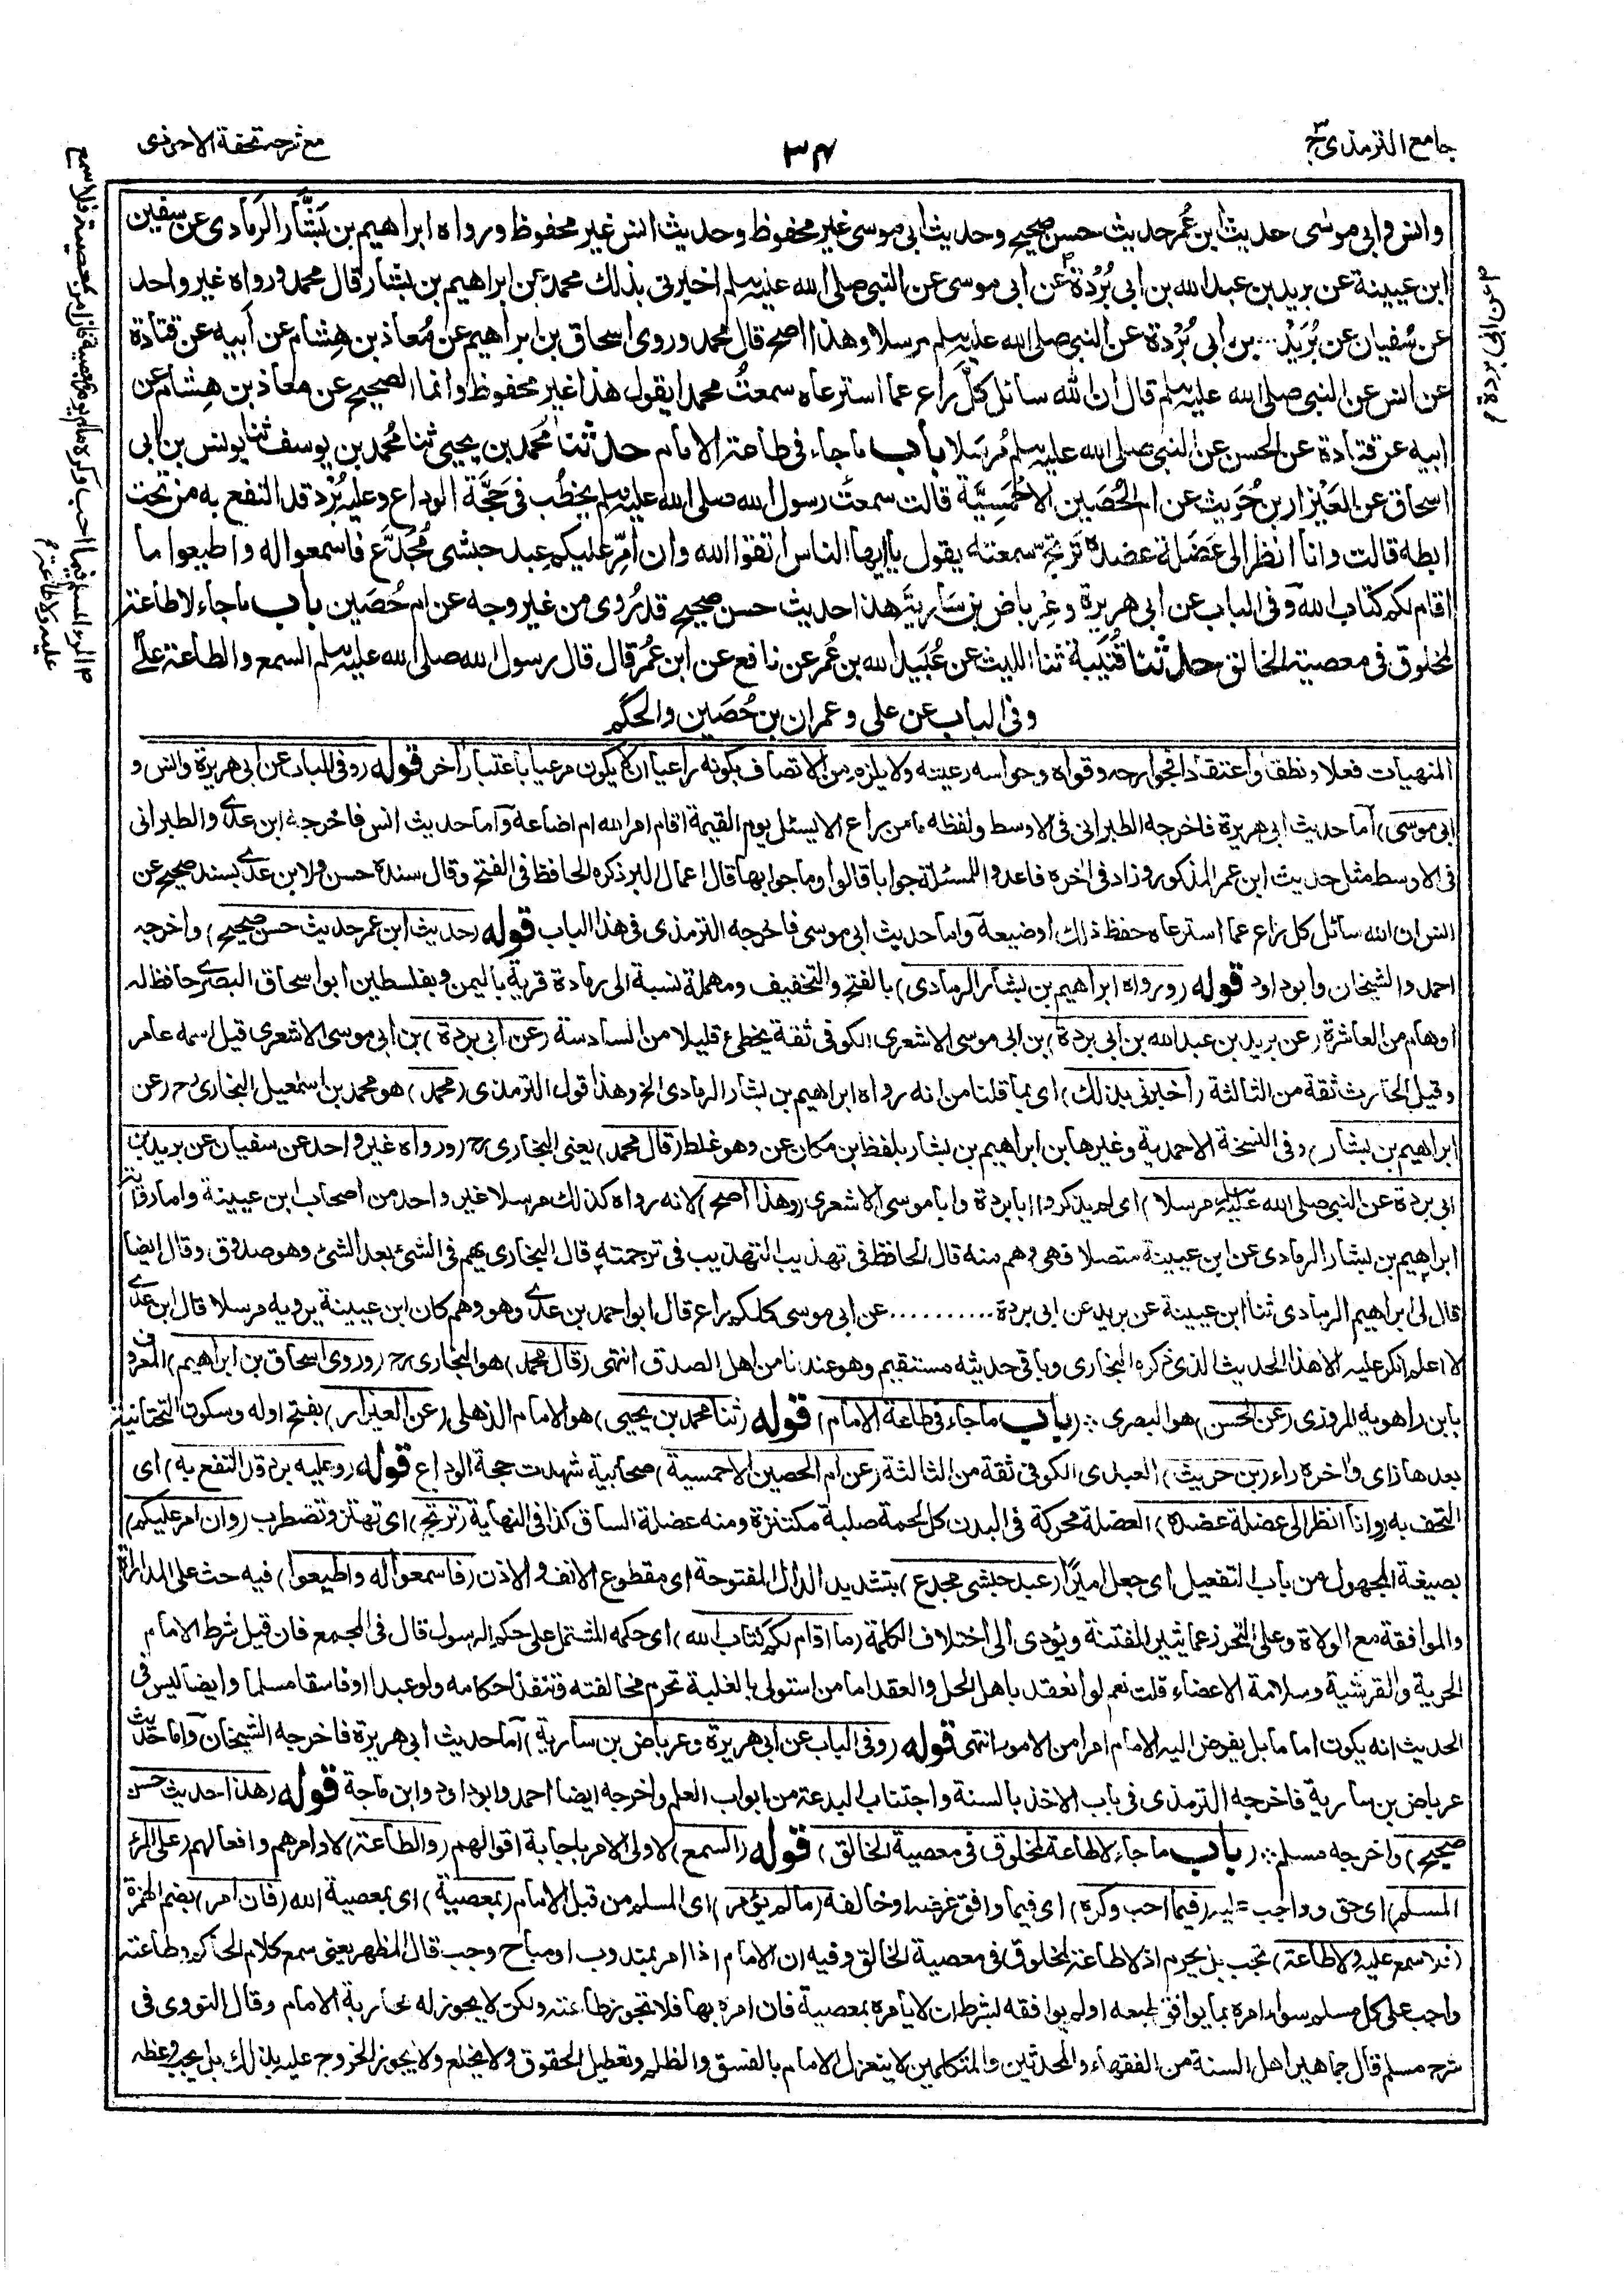 جامع الترمذى ج٣
٣٤
مع شرحه تحفة الاحوذى
وانس وابى موسٰى حديث ابن عُمر حديث حسن صحيح وحديث ابى موسى غير محفوظ وحديث انس غير محفوظ ورواه ابراهيم بن بَشَّار الرَمادى عن سفين
ابن عيينة عن بريد بن عبد الله بن ابى بُرْدَة عن ابى موسى عن النبى صلى الله عليه وسلم اخبرنى بذلك محمد عن ابراهيم بن بشار قال محمد ورواه غير واحد
عن سُفيان عن بُرَيْد... بن ابى بُرْدة عن النبى صلى الله عليه وسلم مرسلا وهذا اصح قال محمد وروى اسحاق بن ابراهيم عن مُعاذ بن هِشام عن أبيه عن قتادة
عن انس عن النبى صلى الله عليه وسلم قال ان الله سائل كلَّ راع عما استرعاه سمعتُ محمدا يقول هذا غير محفوظ وانما الصحيح عن معاذ بن هِشام عن
ابيه عن قتادة عن الحسن عن النبى صلى الله عليه وسلم مُرسَلا باب ماجاء فى طاعة الامام حدثنا مُحَمد بن يحيى ثنا مُحمد بن يوسف ثنا يونس بن ابى
اسحاق عن العَيْزار بن حُرَيث عن ام الحُصَين الاَحْمَسِيَّة قالت سمعتُ رسول الله صلى الله عليه وسلم يخطُب فى حَجَّة الوداع وعليه بُرْد قد التفع به من تحت
ابطه قالت وانا انظر الى عَضَلة عضده تَرتجّ سمعته يقول يا ايها الناس اتقوا الله وان اُمِّر عليكم عبد حبشى مُجَدَّع فاسمعوا له واطيعوا ما
اقام لكم كتاب الله وفى الباب عن ابى هريرة وعِرباض بن سَارية هذا حديث حسن صحيح قد رُوى من غير وجه عن ام حُصَين باب ماجاء لا طاعة
لمخلوق فى معصية الخالق حدثنا قُتَيبة ثنا الليث عن عُبَيد الله بن عُمر عن نافع عن ابن عُمر قال قال رسول الله صلى الله عليه وسلم السمع والطاعة على
وفى الباب عن على وعمران بن حُصَين والحكم
م عن ابى بردة
م المرء المسلم فيما احب وكره مالم يؤمر بمعصية فان امر بمعصية فلا سمع
عليه ولا طاعة
المنهيات فعلا ونطقا واعتقادا فجوارحه وقواه وحواسه رعيته ولا يلزم من الاتصاف بكونه راعيا ان لا يكون مرعيا باعتبار اخر قوله (وفى الباب عن ابى هريرة وانس و
ابى موسى) اما حديث ابى هريرة فاخرجه الطبرانى فى الاوسط ولفظه ما من راع الا يسئل يوم القيمة اقام امر الله ام اضاعه واما حديث انس فاخرجه ابن عدى والطبرانى
فى الاوسط مثل حديث ابن عمر المذكور وزاد فى اخره فاعدوا للمسئلة جوابا قالوا وما جوابها قال اعمال البر ذكره الحافظ فى الفتح وقال سنده حسن ولابن عدى بسند صحيح عن
انس ان الله سائل كل راع عما استرعاه حفظ ذلك او ضيعه واما حديث ابى موسى فاخرجه الترمذى فى هذا الباب قوله (حديث ابن عمر حديث حسن صحيح) واخرجه
احمد والشيخان وابو داود قوله (ورواه ابراهيم بن بشار الرمادى) بالفتح والتخفيف ومهملة نسبة الى رمادة قرية باليمن وبفلسطين ابو اسحاق البصرى حافظ له
اوهام من العاشرة (عن بريد بن عبد الله بن ابى بردة) بن ابى موسى الاشعرى الكوفى ثقة يخطئ قليلا من السادسة (عن ابى بردة) بن ابى موسى الاشعرى قيل اسمه عامر
وقيل الحارث ثقة من الثالثة (اخبرنى بذلك) اى بما قلنا من انه رواه ابراهيم بن بشار الرمادى الخ وهذا قول الترمذى (محمد) هو محمد بن اسمعيل البخارى رح (عن
ابراهيم بن بشار) وفى النسخة الاحمدية وغيرها بن ابراهيم بن بشار بلفظ بن مكان عن وهو غلط (قال محمد) يعنى البخارى رح (ورواه غير واحد عن سفيان عن بريد بن
ابى بردة عن النبى صلى الله عليه وسلم مرسلا) اى لم يذكروا ابا بردة وابا موسى الاشعرى (وهذا اصح) لانه رواه كذلك مرسلا غير واحد من اصحاب ابن عيينة واما رواية
ابراهيم بن بشار الرمادى عن ابن عيينة متصلا فهى وهم منه قال الحافظ فى تهذيب التهذيب فى ترجمته قال البخارى يهم فى الشئ بعد الشئ وهو صدوق وقال ايضا
قال لى ابراهيم الرمادى ثنا ابن عيينة عن بريد عن ابى بردة .......... عن ابى موسى كلكم راع قال ابو احمد بن عدى وهو وهم كان ابن عيينة يرويه مرسلا قال ابن عدى
لا اعلم انكر عليه الا هذا الحديث الذى ذكره البخارى وباقى حديثه مستقيم وهو عندنا من اهل الصدق انتهى (قال محمد) هو البخارى رح (وروى اسحاق بن ابراهيم) المعروف
بابن راهويه المروزى (عن الحسن) هو البصرى (باب ماجاء فى طاعة الامام) قوله (ثنا محمد بن يحيى) هو الامام الذهلى (عن العيزار) بفتح اوله وسكون التحتانية
بعدها زاى واخره راء (بن حريث) العبدى الكوفى ثقة من الثالثة (عن ام الحصين الاحمسية) صحابية شهدت حجة الوداع قوله (وعليه برد قد التفع به) اى
التحف به (وانا انظر الى عضلة عضده) العضلة محركة فى البدن كل لحمة صلبة مكتنزة ومنه عضلة الساق كذا فى النهاية (ترتج) اى تهتز وتضطرب (وان امر عليكم)
بصيغة المجهول من باب التفعيل اى جعل اميرا (عبد حبشى مجدع) بتشديد الدال المفتوحة اى مقطوع الانف والاذن (فاسمعوا له واطيعوا) فيه حث على المداراة
والموافقة مع الولاة وعلى التحرز عما يثير الفتنة ويؤدى الى اختلاف الكلمة (ما اقام لكم كتاب الله) اى حكمه المشتمل على حكم الرسول قال فى المجمع فان قيل شرط الامام
الحرية والقرشية وسلامة الاعضاء قلت نعم لو انعقد باهل الحل والعقد اما من استولى بالغلبة تحرم مخالفته وتنفذ احكامه ولو عبدا او فاسقا مسلما وايضا ليس فى
الحديث انه يكون اماما بل يفوض اليه الامام امرا من الامور انتهى قوله (وفى الباب عن ابى هريرة وعرباض بن سارية) اما حديث ابى هريرة فاخرجه الشيخان واما حديث
عرباض بن سارية فاخرجه الترمذى فى باب الاخذ بالسنة واجتناب البدعة من ابواب العلم واخرجه ايضا احمد وابو داود وابن ماجة قوله (هذا حديث حسن
صحيح) واخرجه مسلم (باب ماجاء لا طاعة لمخلوق فى معصية الخالق) قوله (السمع) لاولى الامر باجابة اقوالهم (والطاعة) لاوامرهم وافعالهم (على المرء
المسلم) اى حق وواجب عليه (فيما احب وكره) اى فيما وافق غرضه او خالفه (مالم يؤمر) اى المسلم من قبل الامام (بمعصية) اى بمعصية الله (فان امر) بضم الهمزة
(فلا سمع عليه ولا طاعة) تجب بل يحرم اذ لا طاعة لمخلوق فى معصية الخالق وفيه ان الامام اذا امر بمندوب او مباح وجب قال المظهر يعنى سمع كلام الحاكم وطاعته
واجب على كل مسلم سواء امره بما يوافق طبعه او لم يوافقه بشرط ان لا يأمره بمعصية فان امره بها فلا تجوز طاعته ولكن لا يجوز له محاربة الامام وقال النووى فى
شرح مسلم قال جماهير اهل السنة من الفقهاء والمحدثين والمتكلمين لا ينعزل الامام بالفسق والظلم وتعطيل الحقوق ولا يخلع ولا يجوز الخروج عليه بذلك بل يجب وعظه